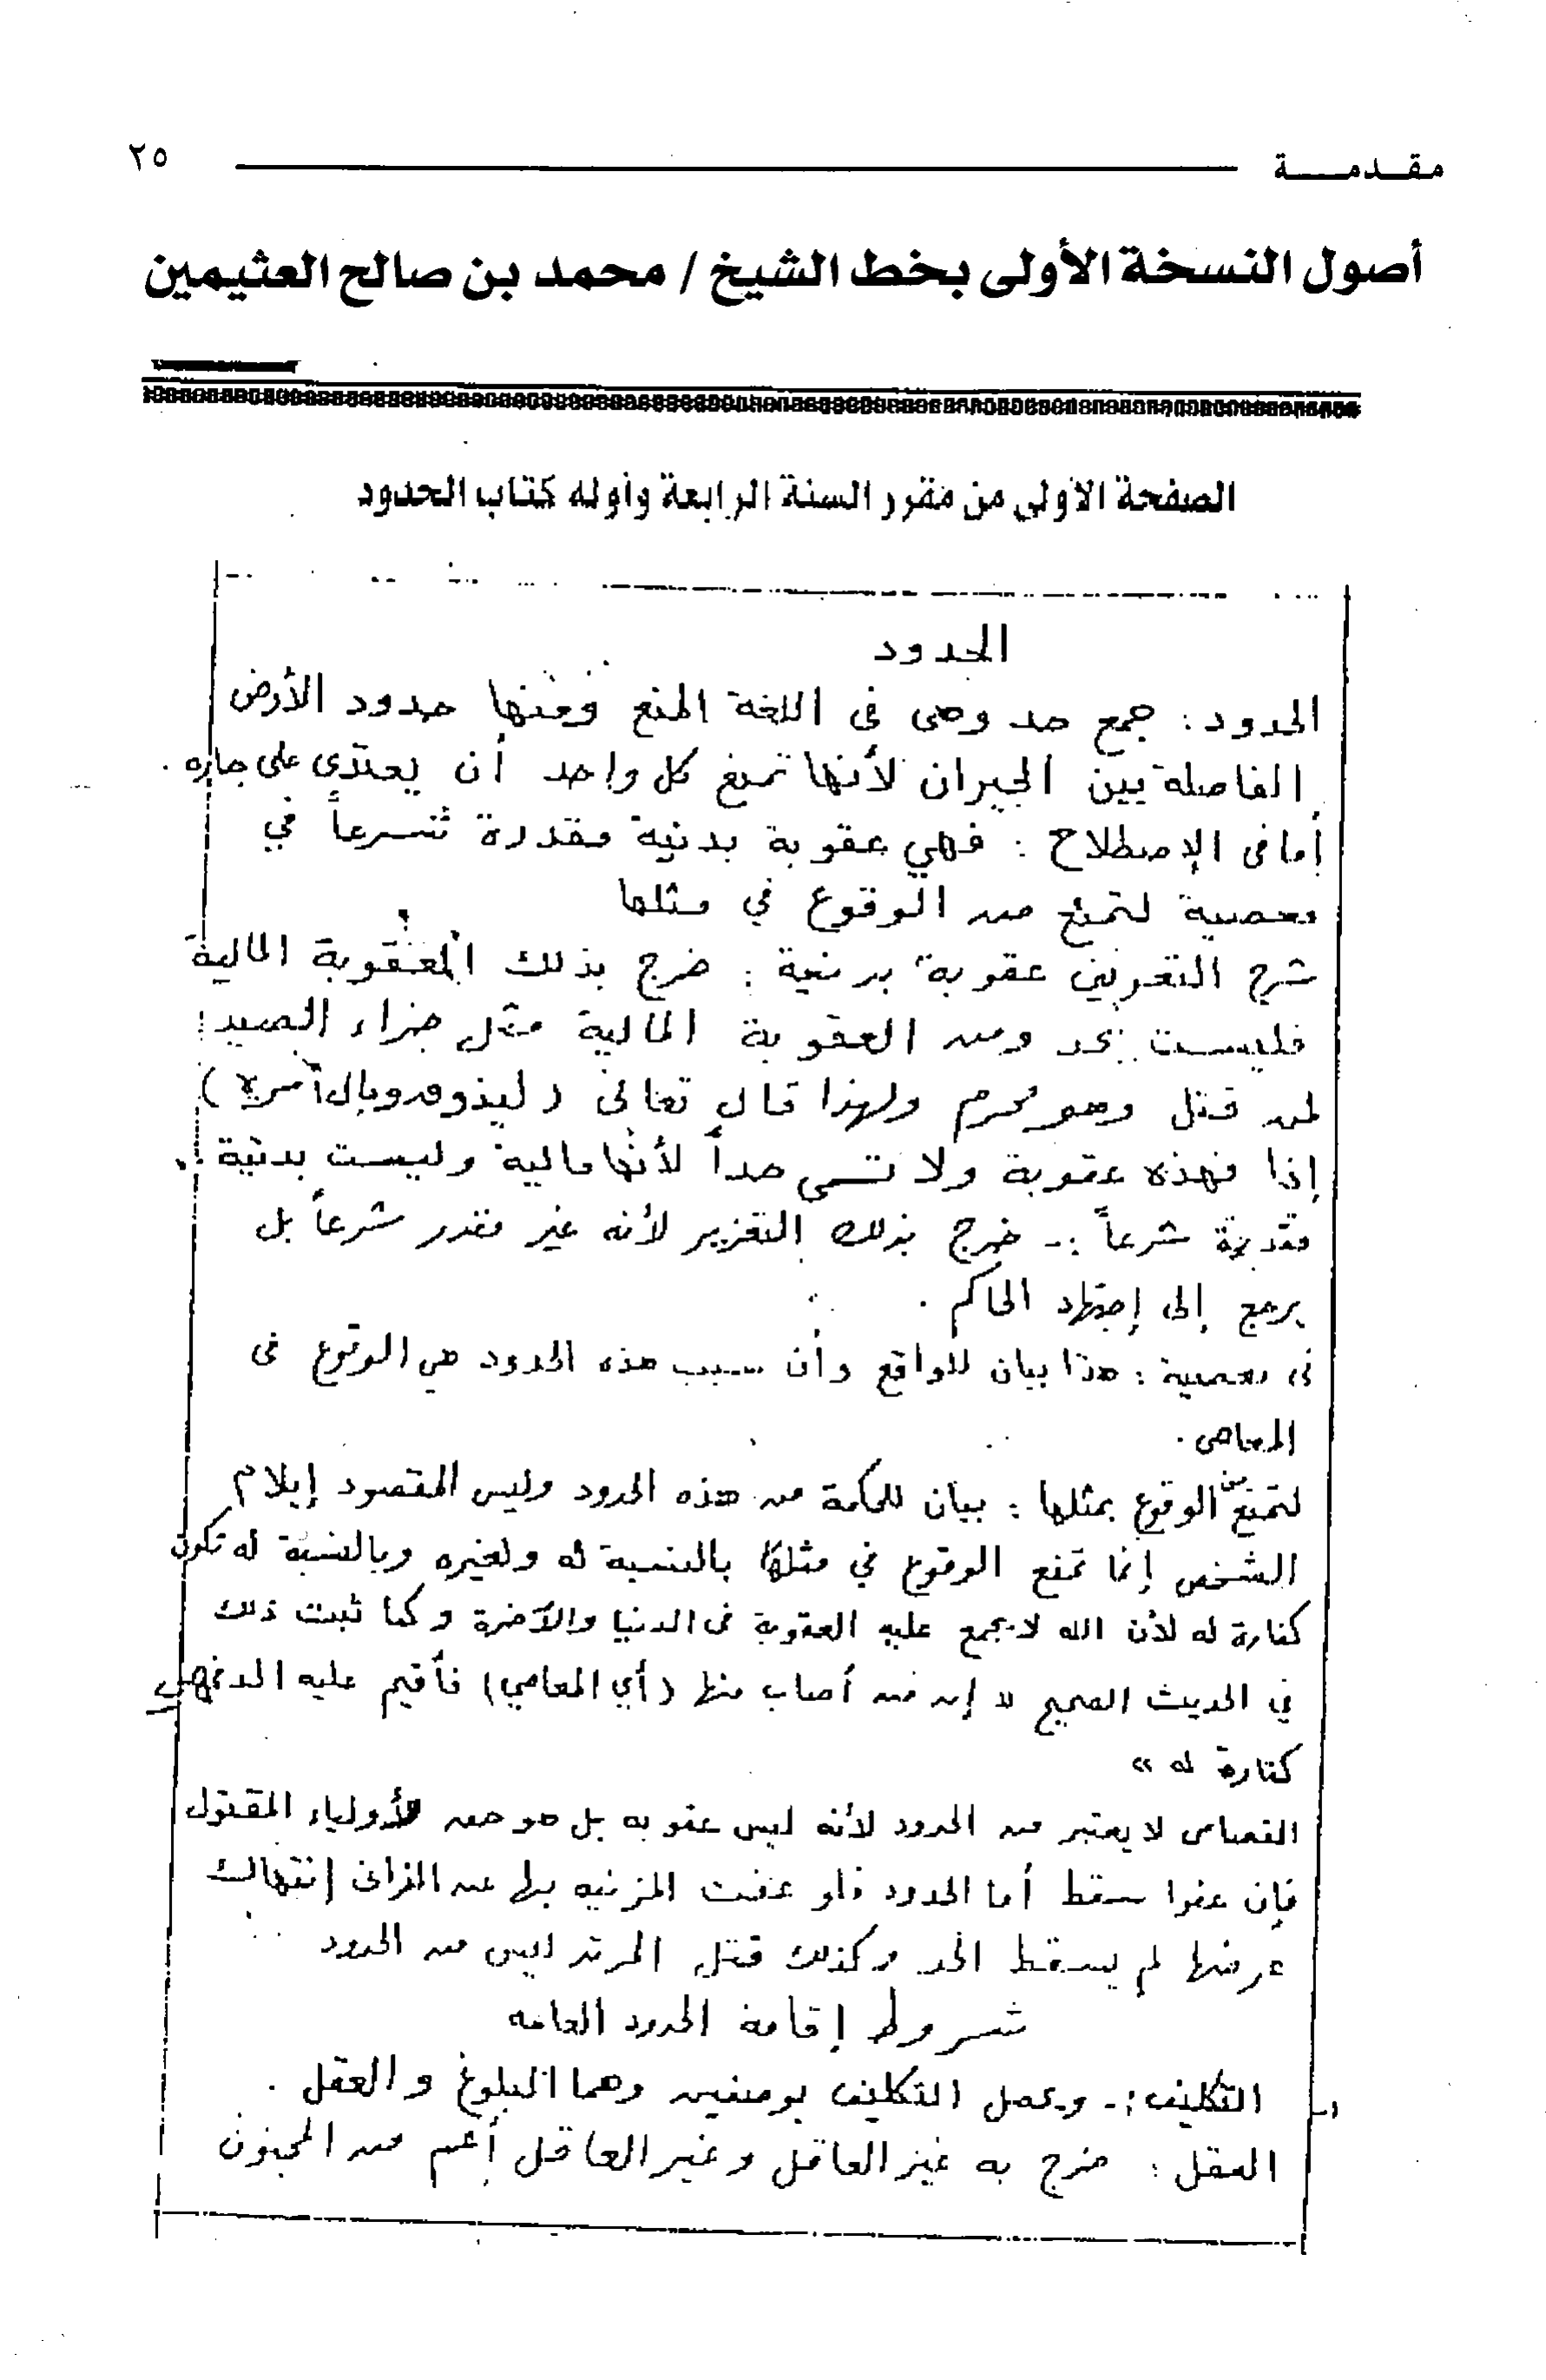 مقدمـــة ٢٥
أصول النسخة الأولى بخط الشيخ / محمد بن صالح العثيمين
الصفحة الأولى من مقرر السنة الرابعة وأوله كتاب الحدود
الحدود
الحدود : جمع حد وهى فى اللغة المنع ومنها حدود الأرض
الفاصلة بين الجيران لأنها تمنع كل واحد أن يعتدى على جاره .
أما فى الإصطلاح : فهي عقوبة بدنية مقدرة شرعاً في
معصية لتمنع من الوقوع في مثلها
شرح التعريف عقوبة بدنية : خرج بذلك العقوبة المالية
فليست بحد ومن العقوبة المالية مثل جزاء الصيد
لمن قتل وهو محرم ولهذا قال تعالى ( ليذوق وبال أمره )
إذا فهذه عقوبة ولا تسمى حداً لأنها مالية وليست بدنية .
مقدرة شرعاً :- خرج بذلك التعزير لأنه غير مقدر شرعاً بل
يرجع إلى إجتهاد الحاكم .
فى معصية : هذا بيان للواقع وأن سبب هذه الحدود هي الوقوع فى
المعاصى .
لتمنع من الوقوع بمثلها : بيان للحكمة من هذه الحدود وليس المقصود إيلام
الشخص إنما تمنع الوقوع في مثلها بالنسبة له ولغيره وبالنسبة له تكون
كفارة له لأن الله لا يجمع عليه العقوبة فى الدنيا والآخرة وكما ثبت ذلك
في الحديث الصحيح « إن من أصاب منها (أي المعاصي) فأقيم عليه الحد فهى
كفارة له »
القصاص لا يعتبر من الحدود لأنه ليس عقوبه بل هو حق لأولياء المقتول
فإن عفوا سقط أما الحدود فلو عفت المزنيه بها عن الزانى إنتهاك
عرضها لم يسقط الحد وكذلك قتل المرتد ليس من الحدود
شروط إقامة الحدود العامه
١- التكليف :- ويحصل التكليف بوصفين وهما البلوغ والعقل .
العقل : خرج به غير العاقل وغير العاقل أعم من المجنون